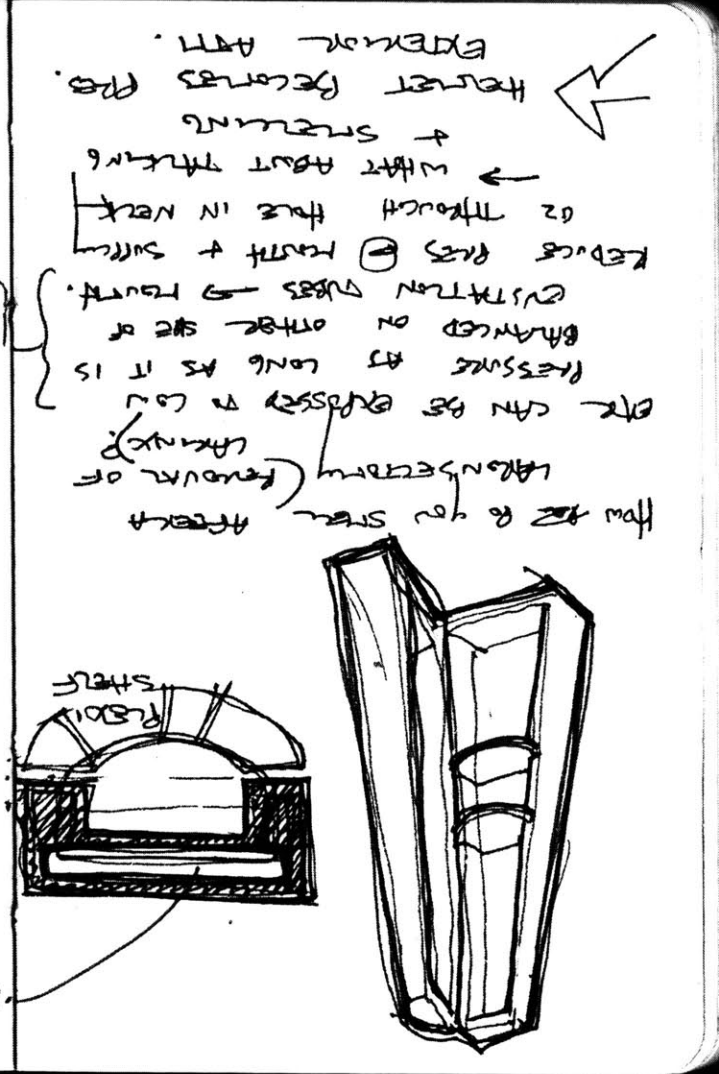 PLEXI
SHELF
HOW DO YOU SMELL AFTER A
LARONSECTOMY (REMOVAL OF
LARANX?)
EAR CAN BE EXPOSSED TO LOW
PRESSURE AS LONG AS IT IS
BALANCED ON OTHER SIDE OF
EUSTATION TUBES → MOUTH.
REDUCE PRES MOUTH + SUPPLY
O2 THROUGH HOLE IN NECK
→ WHAT ABOUT TALKING
+ SMELLING
HELMET BECOMES PRES.
EXTERIOR ATM.